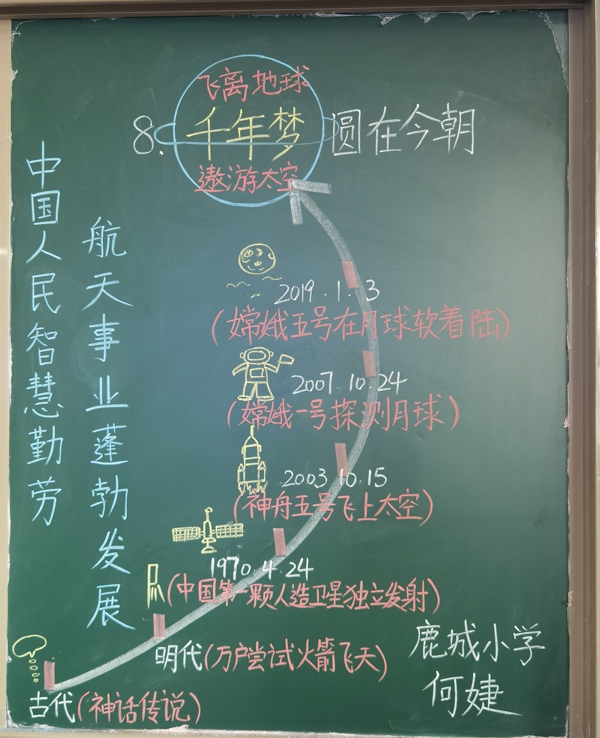 飞离地球
8. 千年梦 圆在今朝
遨游太空
中国人民智慧勤劳
航天事业蓬勃发展
2019.1.3
(嫦娥五号在月球软着陆)
2007.10.24
(嫦娥一号探测月球)
2003.10.15
(神舟五号飞上太空)
1970.4.24
(中国第一颗人造卫星独立发射)
明代(万户尝试火箭飞天)
古代(神话传说)
鹿城小学
何婕